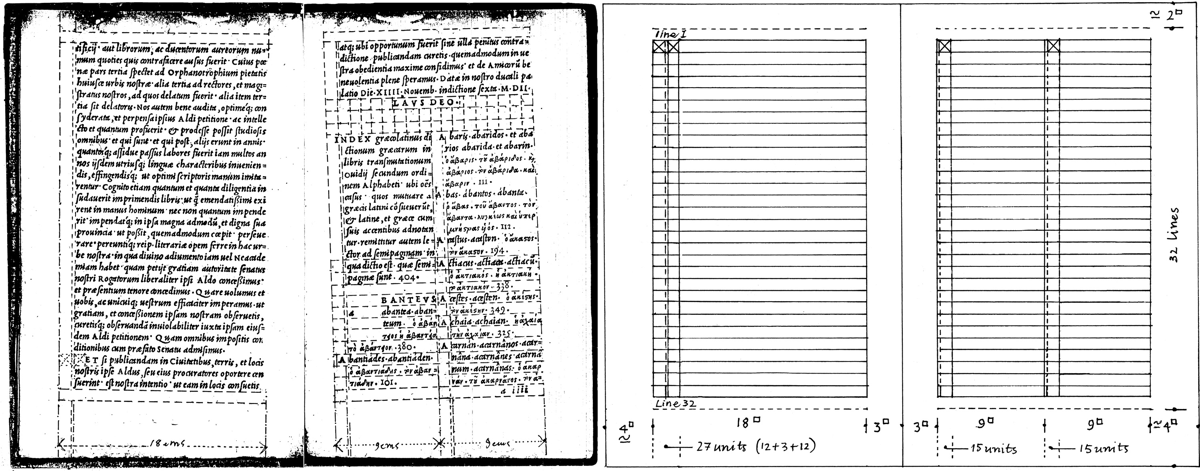 ificij· aut librorum, ac ducentorum aureorum nu=
mum quoties quis contrafacere ausus fuerit· Cuius pœ
næ pars tertia spectet ad Orphanotrophium pietatis
huiusce urbis nostræ· alia tertia ad rectores, et magi=
stratus nostros, ad quos delatum fuerit· alia item ter=
tia sit delatoris· Nos autem bene audita, optimeq; con
syderata, et perpensa ipsius Aldi petitione· ac intelle
cto et quantum profuerit· & prodesse possit studiosis
omnibus· et qui sunt· et qui post, alijs erunt in annis·
assidue passus labores fuerit iam multos an
nos ijsdem utriusq; linguæ characteribus inuenien=
dis, effingendisq; ut optimi scriptoris manum imita=
rentur· Cognito etiam quantum et quanta diligentia in
sudauerit imprimendis libris· ut q̃ emendatissimi exi
rent in manus hominum· nec non quantum impende
rit· impendatq; in ipsa magna admodũ, et digna sua
prouincia· ut possit, quemadmodum cœpit· perseue
rare· pereuntiq; reip· literariæ opem ferre in hac ur=
be nostra· in qua diuino adiumento iam uel Neacade
miam habet· quam petijt gratiam autoritate senatus
nostri Rogatorum liberaliter ipsi Aldo concessimus·
et præsentium tenore concedimus· Quare uolumus et
uobis, ac unicuiq; uestrum efficaciter imperamus· ut
gratiam, et concessionem ipsam nostram obseruetis,
curetisq; obseruandã inuiolabiliter iuxta ipsam eius=
dem Aldi petitionem· Quam omnibus impositis con
ditionibus cum præfato Senatu admisimus·
ET si publicandam in Ciuitatibus, terris, et locis
nostris ipse Aldus, seu eius procuratores oportere cen
suerint· est nostra intentio· ut eam in locis consuetis
18 ems
atq; ubi opportunum fuerit sine ulla penitus contra=
dictione· publicandam curetis· quemadmodum in ue
stra obedientia maxime confidimus· et de Amicorũ be
neuolentia plene speramus· Datæ in nostro ducali pa
latio Die· XIIII· Nouemb· indictione sexta· M·DII·
LAVS DEO·
INDEX græcolatinus di
ctionum græcarum in
libris transmutationum
Ouidij secundum ordi=
nem Alphabeti· ubi oẽs
casus· quos mutuare a
græcis latini cõsueuerũt,
& latine, et græce cum
suis accentibus adnoten
tur· remittitur autem le=
ctor ad semipaginam in
qua dictio est· quæ semi
paginæ sunt· 404·
BANTEVS
a abantea· aban=
teum·
380·
A bantiades· abantiaden·
101·
A baris· abaridos· et aba
rios abarida· et abarin·
111·
A bas· ábantos· ábanta·
111·
A cestus· acesten·
194·
A ctiacus· actiaca· actiacũ
338·
A cestes· acesten·
349·
A chaia· achaian·
325·
A carnán· acarnános· acar=
nána· acarnánes· acarná
num· acarnánas·
a iiii
9 ems 9 ems
line 1
Line 32
32 lines
≃ 2□
4□
≃
18□
3□
3□
9□
9□
≃4□
27 units (12+3+12)
15 units
15 units